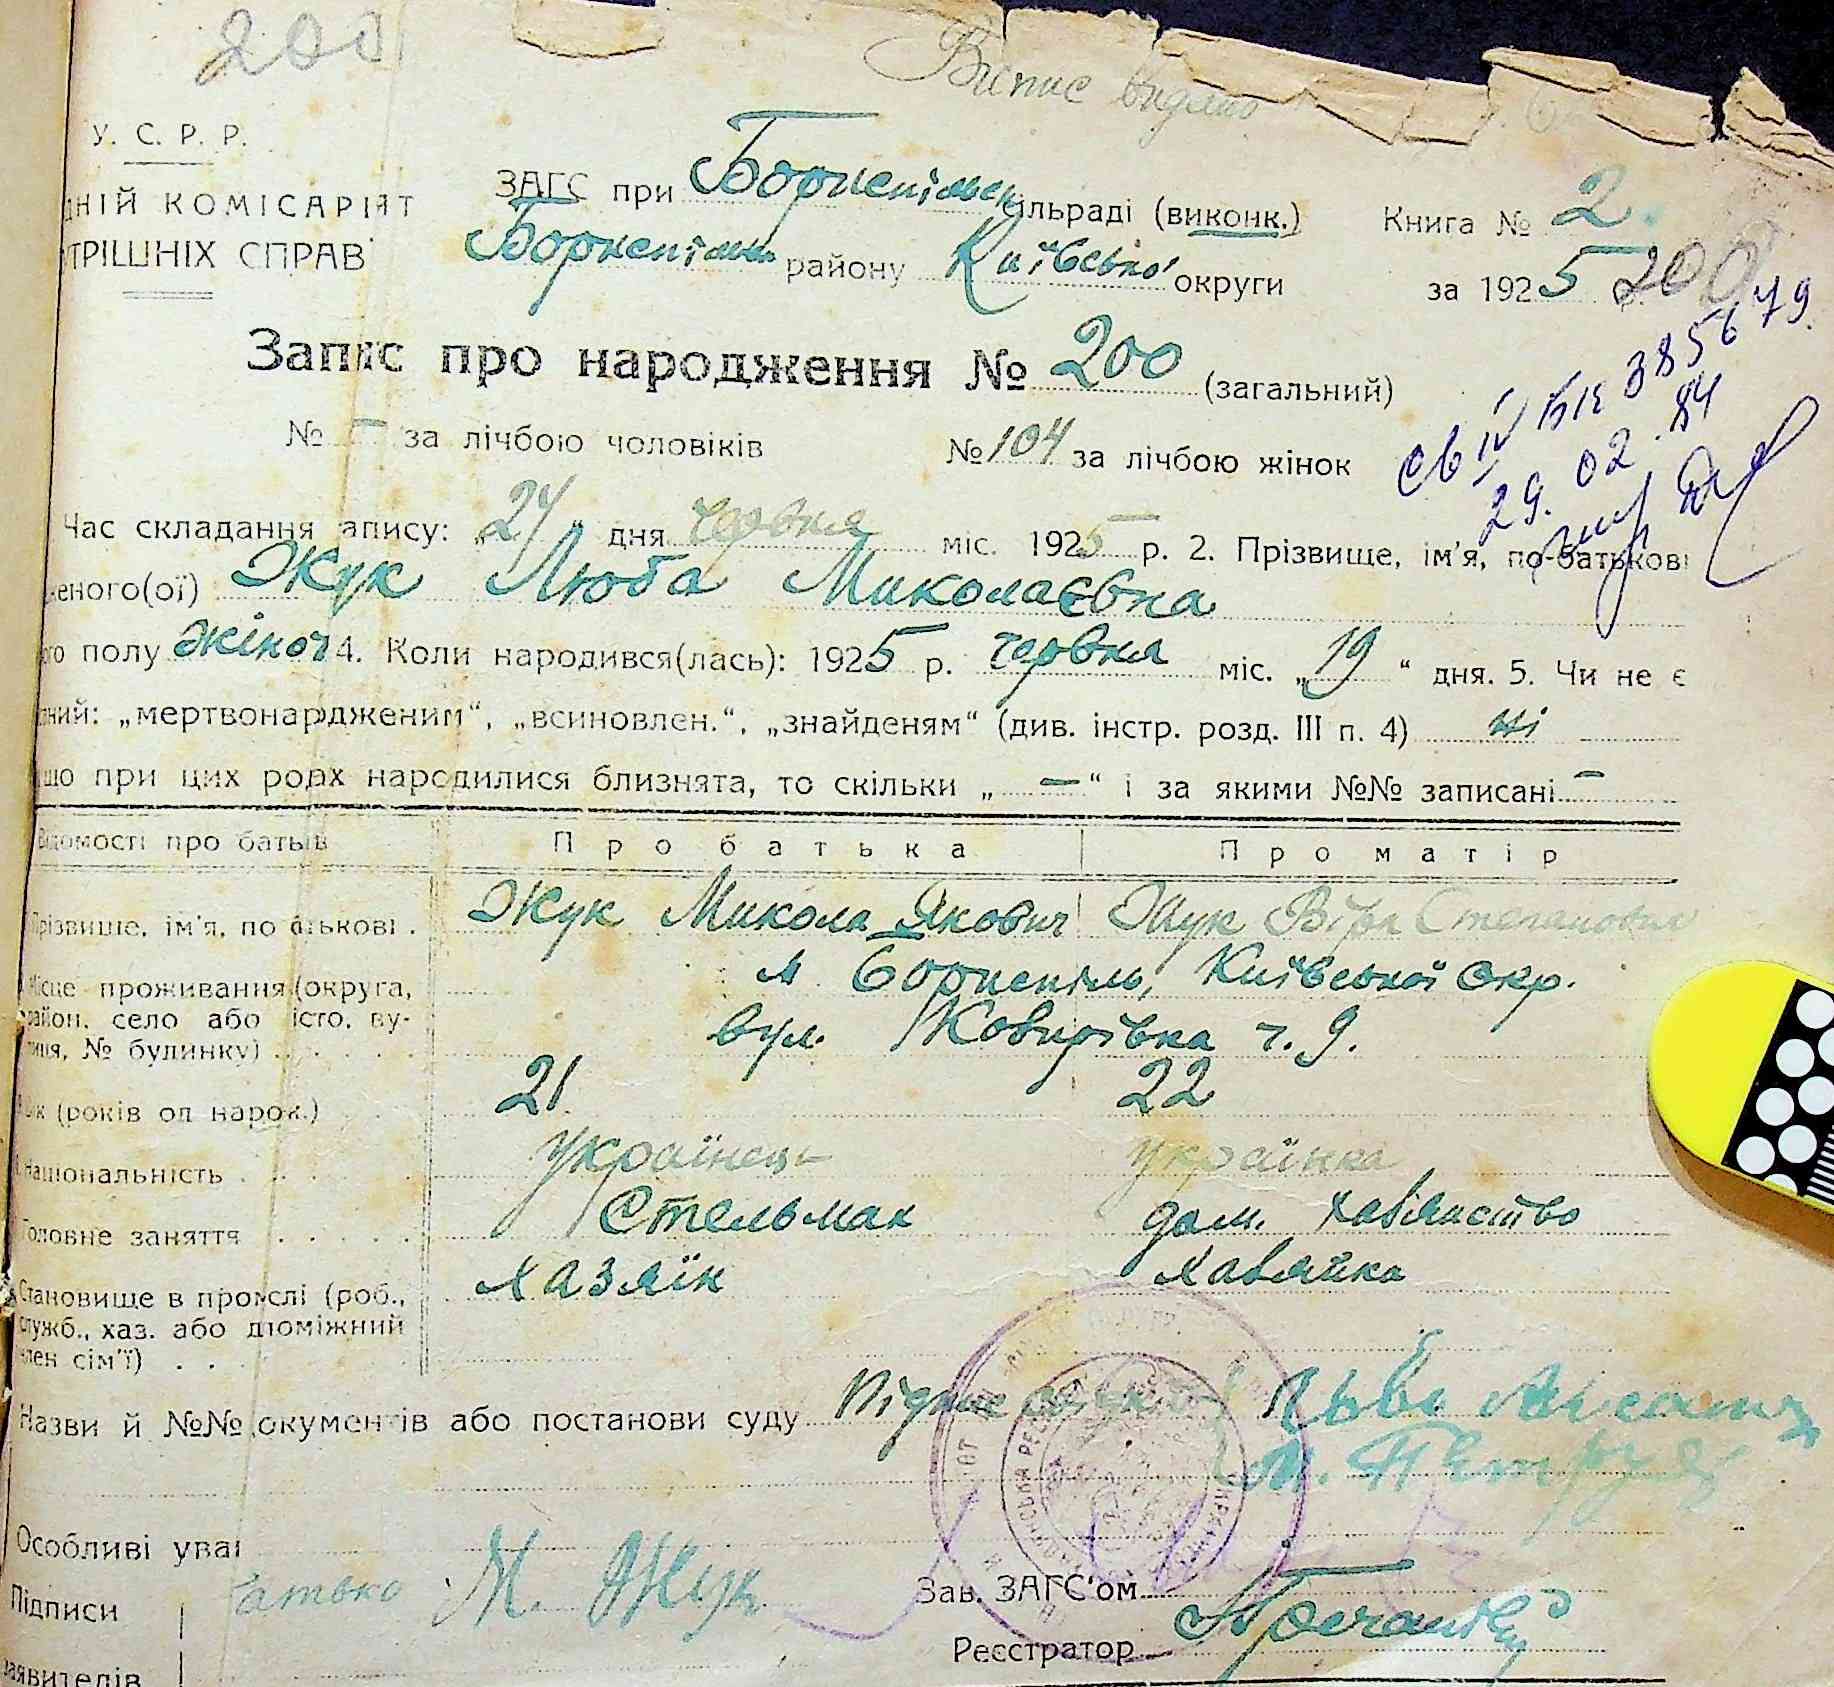 200
Випис видано
У. С. Р. Р.
ДНІЙ КОМІСАРІЯТ
ТРІШНІХ СПРАВ
ЗАГС при Бориспільськ ільраді (виконк.)
Книга № 2.
Бориспільськ району Київської округи
за 1925 р. 200
Запис про народження № 200 (загальний)
№ – за лічбою чоловіків № 104 за лічбою жінок
св IV БК 385679.
29.02.84
Час складання апису: „24“ дня червня міс. 1925 р. 2. Прізвище, ім'я, по-батькові
женого(ої) Жук Люба Миколаєвна
ого полу жіноч 4. Коли народився(лась): 1925 р. червня міс. „19“ дня. 5. Чи не є
ний: „мертвонародженим“, „всиновлен.“, „знайденям“ (див. інстр. розд. III п. 4) ні
що при цих родах народилися близнята, то скільки „ – “ і за якими №№ записані –
Відомості про батьів Про батька Про матір
Прізвище, ім'я, по батькові . Жук Микола Якович Жук Віра Степановна
Місце проживання (округа, м Бориспіль, Київської Окр.
район, село або місто, ву- вул. Ковирівка ч. 9.
лиця, № будинку)
Вік (років од нарож.) 21 22
Національність українець українка
Головне заняття Стельмах дом. хазяйство
Становище в промслі (роб., хазяїн хазяйка
служб., хаз. або допоміжний
член сім'ї)
Назви й №№ окументів або постанови суду Підпис свідків
М. Петру
Особливі уваг
Підписи батько М. Жук
заявителів
Зав. ЗАГС'ом
Реєстратор